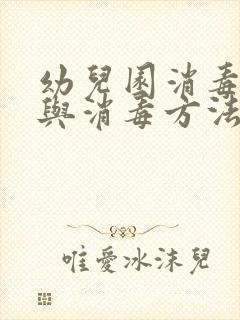 幼兒園消毒
與消毒方法
唯愛冰沫兒